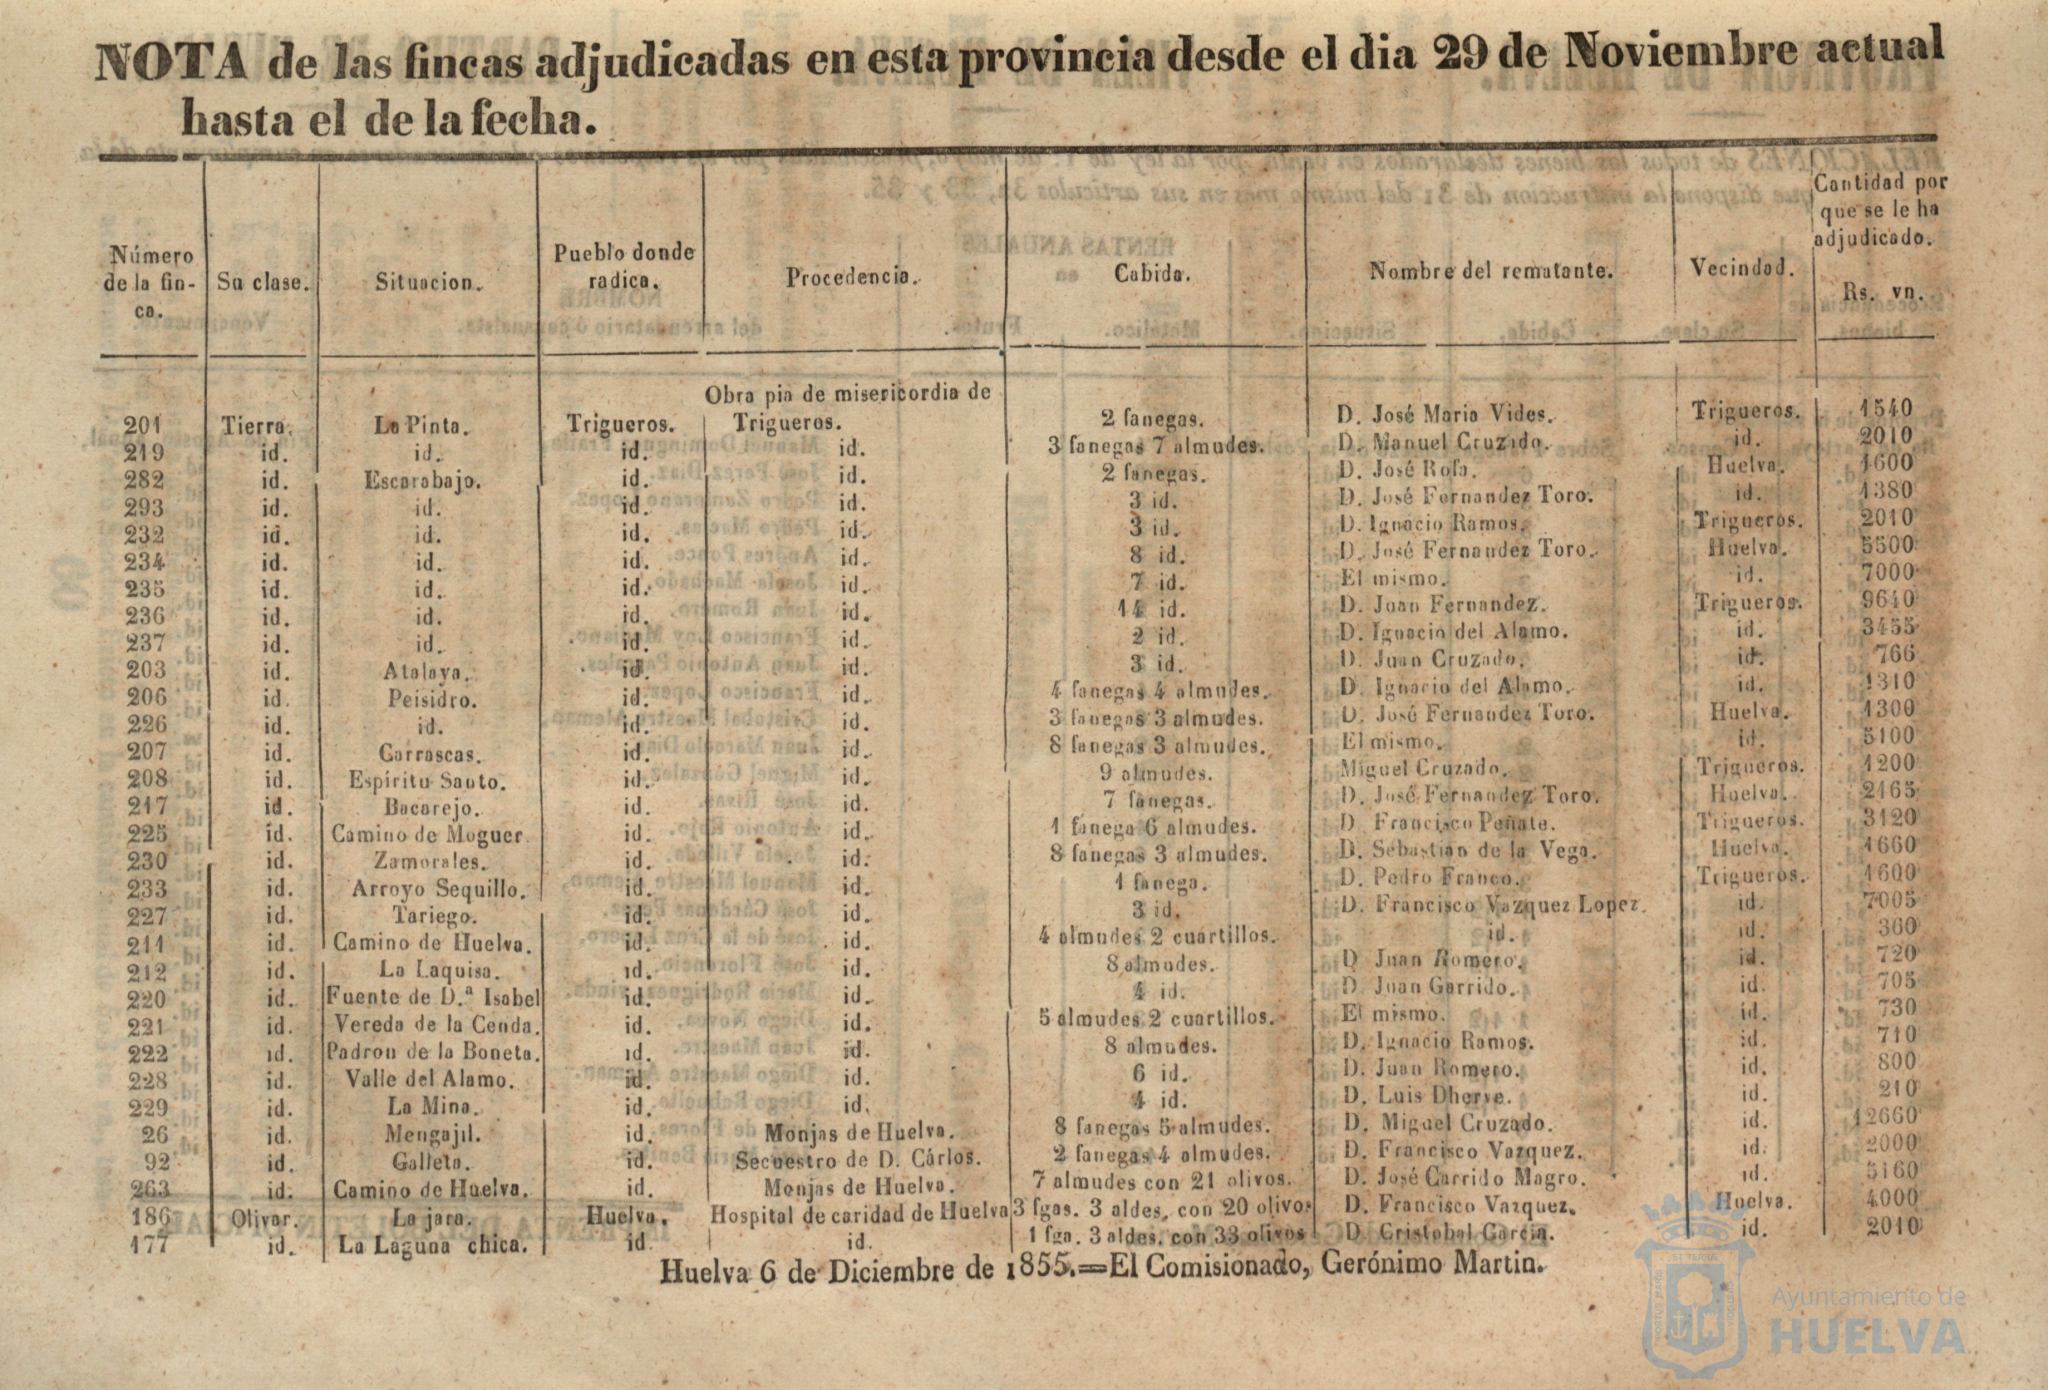 NOTA de las fincas adjudicadas en esta provincia desde el dia 29 de Noviembre actual
hasta el de la fecha.
Número de la fin-ca. Su clase. Situacion. Pueblo donde radica. Procedencia. Cabida. Nombre del rematante. Vecindad. Cantidad por que se le ha adjudicado. Rs. vn.
Obra pia de misericordia de
201 Tierra. La Pinta. Trigueros. Trigueros. 2 fanegas. D. José Maria Vides. Trigueros. 1540
219 id. id. id. id. 3 fanegas 7 almudes. D. Manuel Cruzado. id. 2010
282 id. Escarabajo. id. id. 2 fanegas. D. José Rofa. Huelva. 1600
293 id. id. id. id. 3 id. D. José Fernandez Toro. id. 1380
232 id. id. id. id. 3 id. D. Ignacio Ramos. Trigueros. 2010
234 id. id. id. id. 8 id. D. José Fernandez Toro. Huelva. 5500
235 id. id. id. id. 7 id. El mismo. id. 7000
236 id. id. id. id. 14 id. D. Juan Fernandez. Trigueros. 9640
237 id. id. id. id. 2 id. D. Ignacio del Alamo. id. 3455
203 id. Atalaya. id. id. 3 id. D. Juan Cruzado. id. 766
206 id. Peisidro. id. id. 4 fanegas 4 almudes. D. Ignacio del Alamo. id. 1310
226 id. id. id. id. 3 fanegas 3 almudes. D. José Fernandez Toro. Huelva. 1300
207 id. Carrascas. id. id. 8 fanegas 3 almudes. El mismo. id. 5100
208 id. Espíritu Santo. id. id. 9 almudes. Miguel Cruzado. Trigueros. 1200
217 id. Bacarejo. id. id. 7 fanegas. D. José Fernandez Toro. Huelva. 2165
225 id. Camino de Moguer id. id. 1 fanega 6 almudes. D Francisco Peñate. Trigueros. 3120
230 id. Zamorales. id. id. 8 fanegas 3 almudes. D. Sebastian de la Vega. Huelva. 1660
233 id. Arroyo Sequillo. id. id. 1 fanega. D. Pedro Franco. Trigueros. 1600
227 id. Tariego. id. id. 3 id. D. Francisco Vazquez Lopez. id. 7005
211 id. Camino de Huelva. id. id. 4 almudes 2 cuartillos. id. id. 360
212 id. La Laquisa. id. id. 8 almudes. D Juan Romero. id. 720
220 id. Fuente de D.ª Isabel id. id. 4 id. D. Juan Garrido. id. 705
221 id. Vereda de la Cenda. id. id. 5 almudes 2 cuartillos. El mismo. id. 730
222 id. Padron de la Boneta. id. id. 8 almudes. D. Ignacio Ramos. id. 710
228 id. Valle del Alamo. id. id. 6 id. D. Juan Romero. id. 800
229 id. La Mina. id. id. 4 id. D. Luis Dherve. id. 210
26 id. Mengajil. id. Monjas de Huelva. 8 fanegas 5 almudes. D. Miguel Cruzado. id. 12660
92 id. Galleta. id. Secuestro de D. Cárlos. 2 fanegas 4 almudes. D. Francisco Vazquez. id. 2000
263 id. Camino de Huelva. id. Monjas de Huelva. 7 almudes con 21 olivos. D. José Garrido Magro. id. 5160
186 Olivar. La jara. Huelva. Hospital de caridad de Huelva 3 fgas. 3 aldes. con 20 olivos D. Francisco Vazquez. Huelva. 4000
177 id. La Laguna chica. id. id. 1 fga. 3 aldes. con 33 olivos D. Cristobal Garcia. id. 2010
Huelva 6 de Diciembre de 1855.=El Comisionado, Gerónimo Martin.
Ayuntamiento de
HUELVA